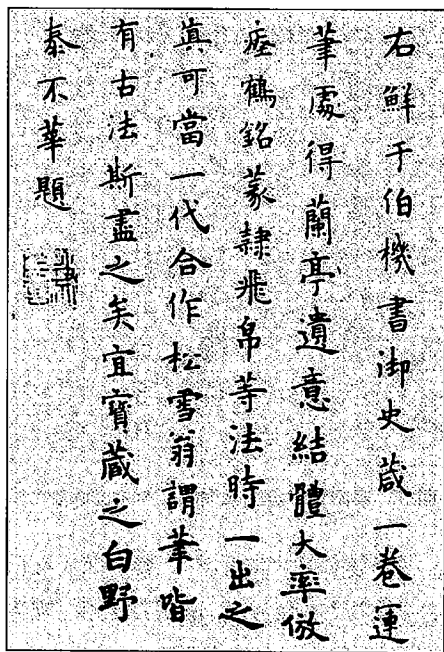 右鮮于伯機書御史箴一卷運
筆處得蘭亭遺意結體大率倣
瘞鶴銘篆隸飛帛等法時一出之
真可當一代合作松雪翁謂筆皆
有古法斯盡之矣宜寶蔵之白野
泰不華題